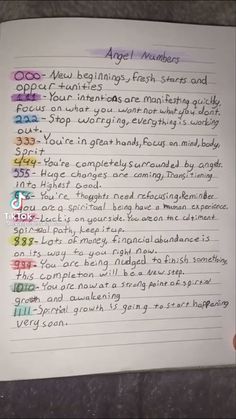 Angel Numbers
000- New beginnings, fresh starts and
oppurtunities
111- Your intentions are manifesting quickly,
focus on what you want not what you dont.
222- Stop worrying, everything is working
out.
333- You're in great hands, focus on mind, body,
Sprit
444- You're completely surrounded by angels.
555- Huge changes are coming, Transitioning
into Highest Good.
You're thoughts need refocusing. Remember
you are a spiritual being have a human experience.
Luck is on your side. You are on the
Spiritual path, keep it up.
888- Lots of money, financial abundance is
on its way to you right now.
999- You are being nudged to finish something,
this completion will be a new step.
1010- You are now at a strong point of spirtial
growth and awakening
1111- Spirtial growth is going to start happening
very soon.
TikTok